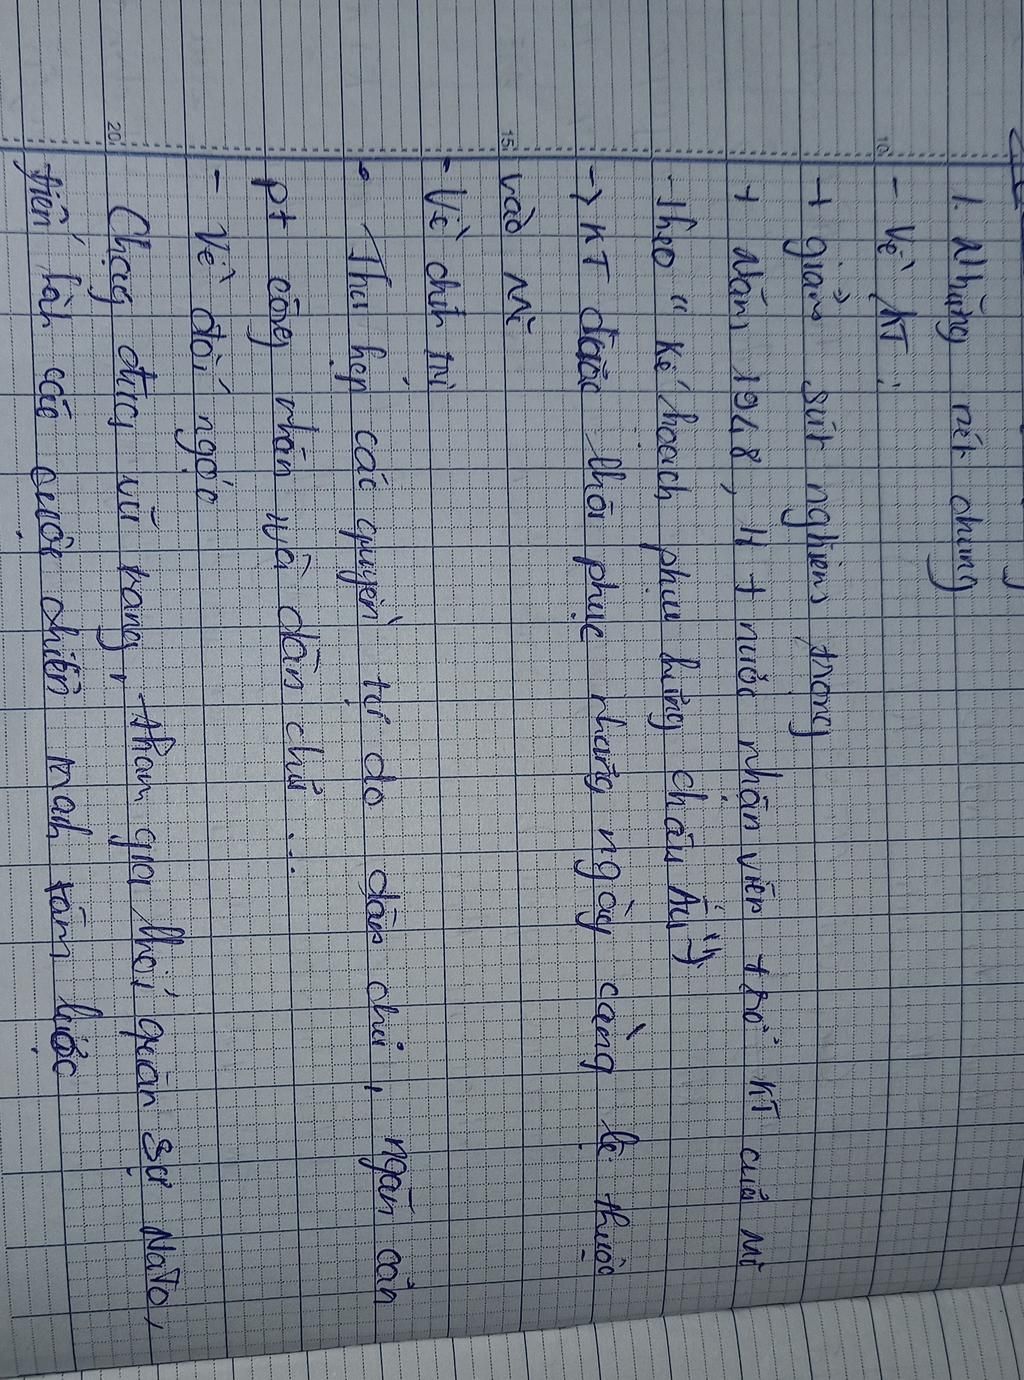 1. Những nét chung
- Về KT :
+ giảm sút nghiêm trọng
+ Năm 1948, 1 + nước nhận viện trợ KT của Mĩ
Theo " Kế hoạch phục hưng châu Âu "
-> KT được khôi phục nhưng ngày càng lệ thuộc
vào Mĩ
- Về chính trị
• Thu hẹp các quyền tự do dân chủ, ngăn cản
pt công nhân và dân chủ ...
- Về đối ngoại
Chạy đua vũ trang, tham gia khối quân sự NaTo,
tiến hành các cuộc chiến tranh xâm lược
10
15
20